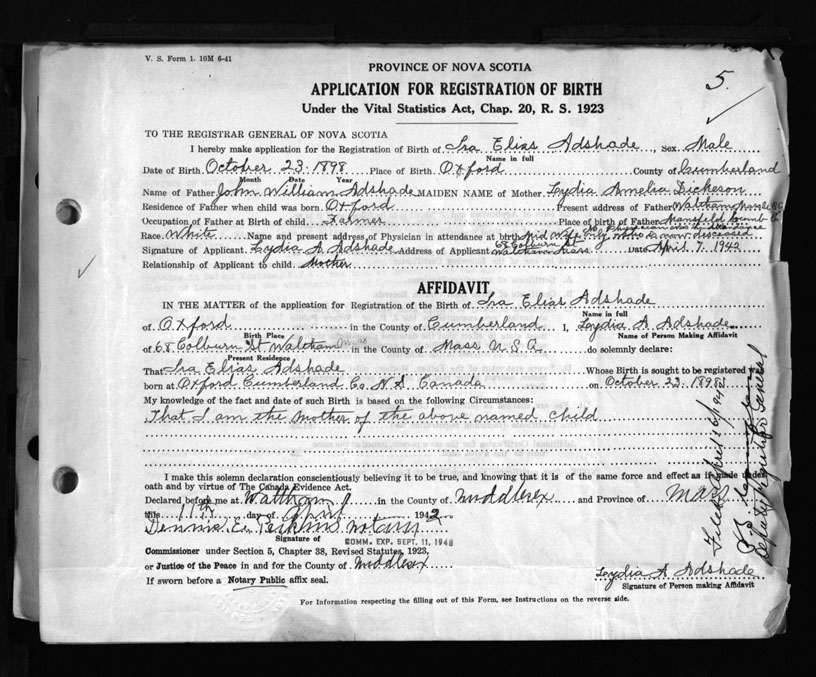 V. S. Form 1. 10M 6-41
PROVINCE OF NOVA SCOTIA
5.
APPLICATION FOR REGISTRATION OF BIRTH
Under the Vital Statistics Act, Chap. 20, R. S. 1923
TO THE REGISTRAR GENERAL OF NOVA SCOTIA
I hereby make application for the Registration of Birth of Ira Elias Adshade, Sex Male
Name in full
Date of Birth October 23 1898 Place of Birth Oxford County of Cumberland
Month Date Year
Name of Father John William Adshade MAIDEN NAME of Mother Lydia Amelia Dickeson
Residence of Father when child was born Oxford Present address of Father Waltham
Occupation of Father at Birth of child Farmer Place of birth of Father Mansfield Cumb Co
Race White Name and present address of Physician in attendance at birth No physician was in attendance
Mid Wife only who is now deceased
Signature of Applicant Lydia A Adshade Address of Applicant 68 Colburn St Waltham Mass Date April 7, 1942
Relationship of Applicant to child Mother
AFFIDAVIT
IN THE MATTER of the application for Registration of the Birth of Ira Elias Adshade
Name in full
of Oxford in the County of Cumberland I, Lydia A Adshade
Birth Place Name of Person Making Affidavit
of 68 Colburn St Waltham in the County of Mass U.S.A. do solemnly declare:
Present Residence
That Ira Elias Adshade Whose Birth is sought to be registered was
born at Oxford Cumberland Co. N.S. Canada on October 23. 1898
My knowledge of the fact and date of such Birth is based on the following Circumstances:
That I am the mother of the above named child
I make this solemn declaration conscientiously believing it to be true, and knowing that it is of the same force and effect as if made under
oath and by virtue of The Canada Evidence Act.
Declared before me at Waltham in the County of Middlesex and Province of Mass
this 11th day of April 1942
Dennis E. Perkins Notary
Signature of COMM. EXP. SEPT. 11, 1948
Commissioner under Section 5, Chapter 38, Revised Statutes, 1923,
or Justice of the Peace in and for the County of Middlesex
If sworn before a Notary Public affix seal.
Lydia A Adshade
Signature of Person making Affidavit
For Information respecting the filling out of this Form, see Instructions on the reverse side.
Filed April 16/1942
Deputy Registrar General